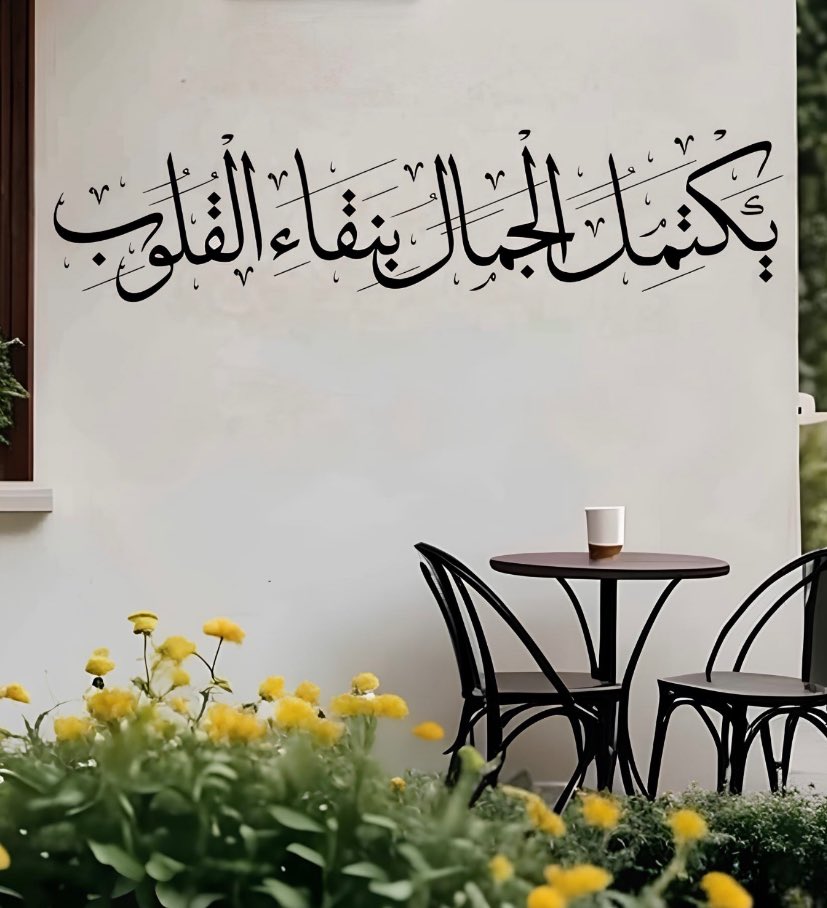 يَكْتَمِلُ الْجَمَالُ بِنَقَاءِ الْقُلُوبِ